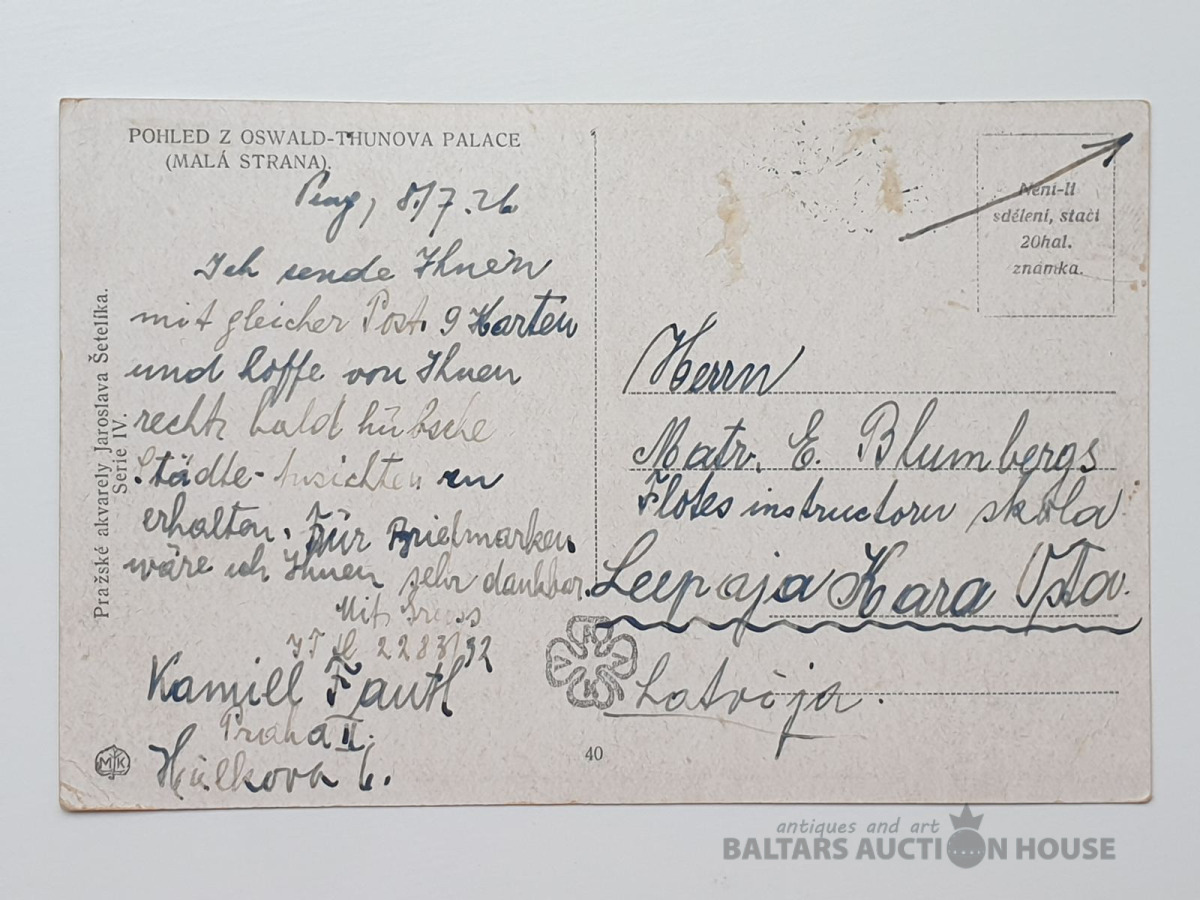 POHLED Z OSWALD-THUNOVA PALACE
(MALÁ STRANA).
Prag, 8./7. 26
Ich sende Ihnen
mit gleicher Post. 9 Karten
und hoffe von Ihnen
recht bald hübsche
Städte-Ansichten zu
erhalten. Für Briefmarken
wäre ich Ihnen sehr dankbar.
Mit Gruss
22831/92
Kamill
Praha II.
Hálkova 6.
Pražské akvarely Jaroslava Šetelíka.
Serie IV.
MK
40
VKVK
Není-li
sdělení, stačí
20hal.
známka.
Herrn
Matr. E. Blumbergs
Flotes instructoru skola
Leepaja Kara Osta.
Latvija.
antiques and art
BALTARS AUCTION HOUSE